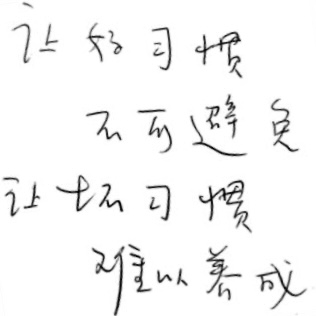 让好习惯
不可避免
让坏习惯
难以养成